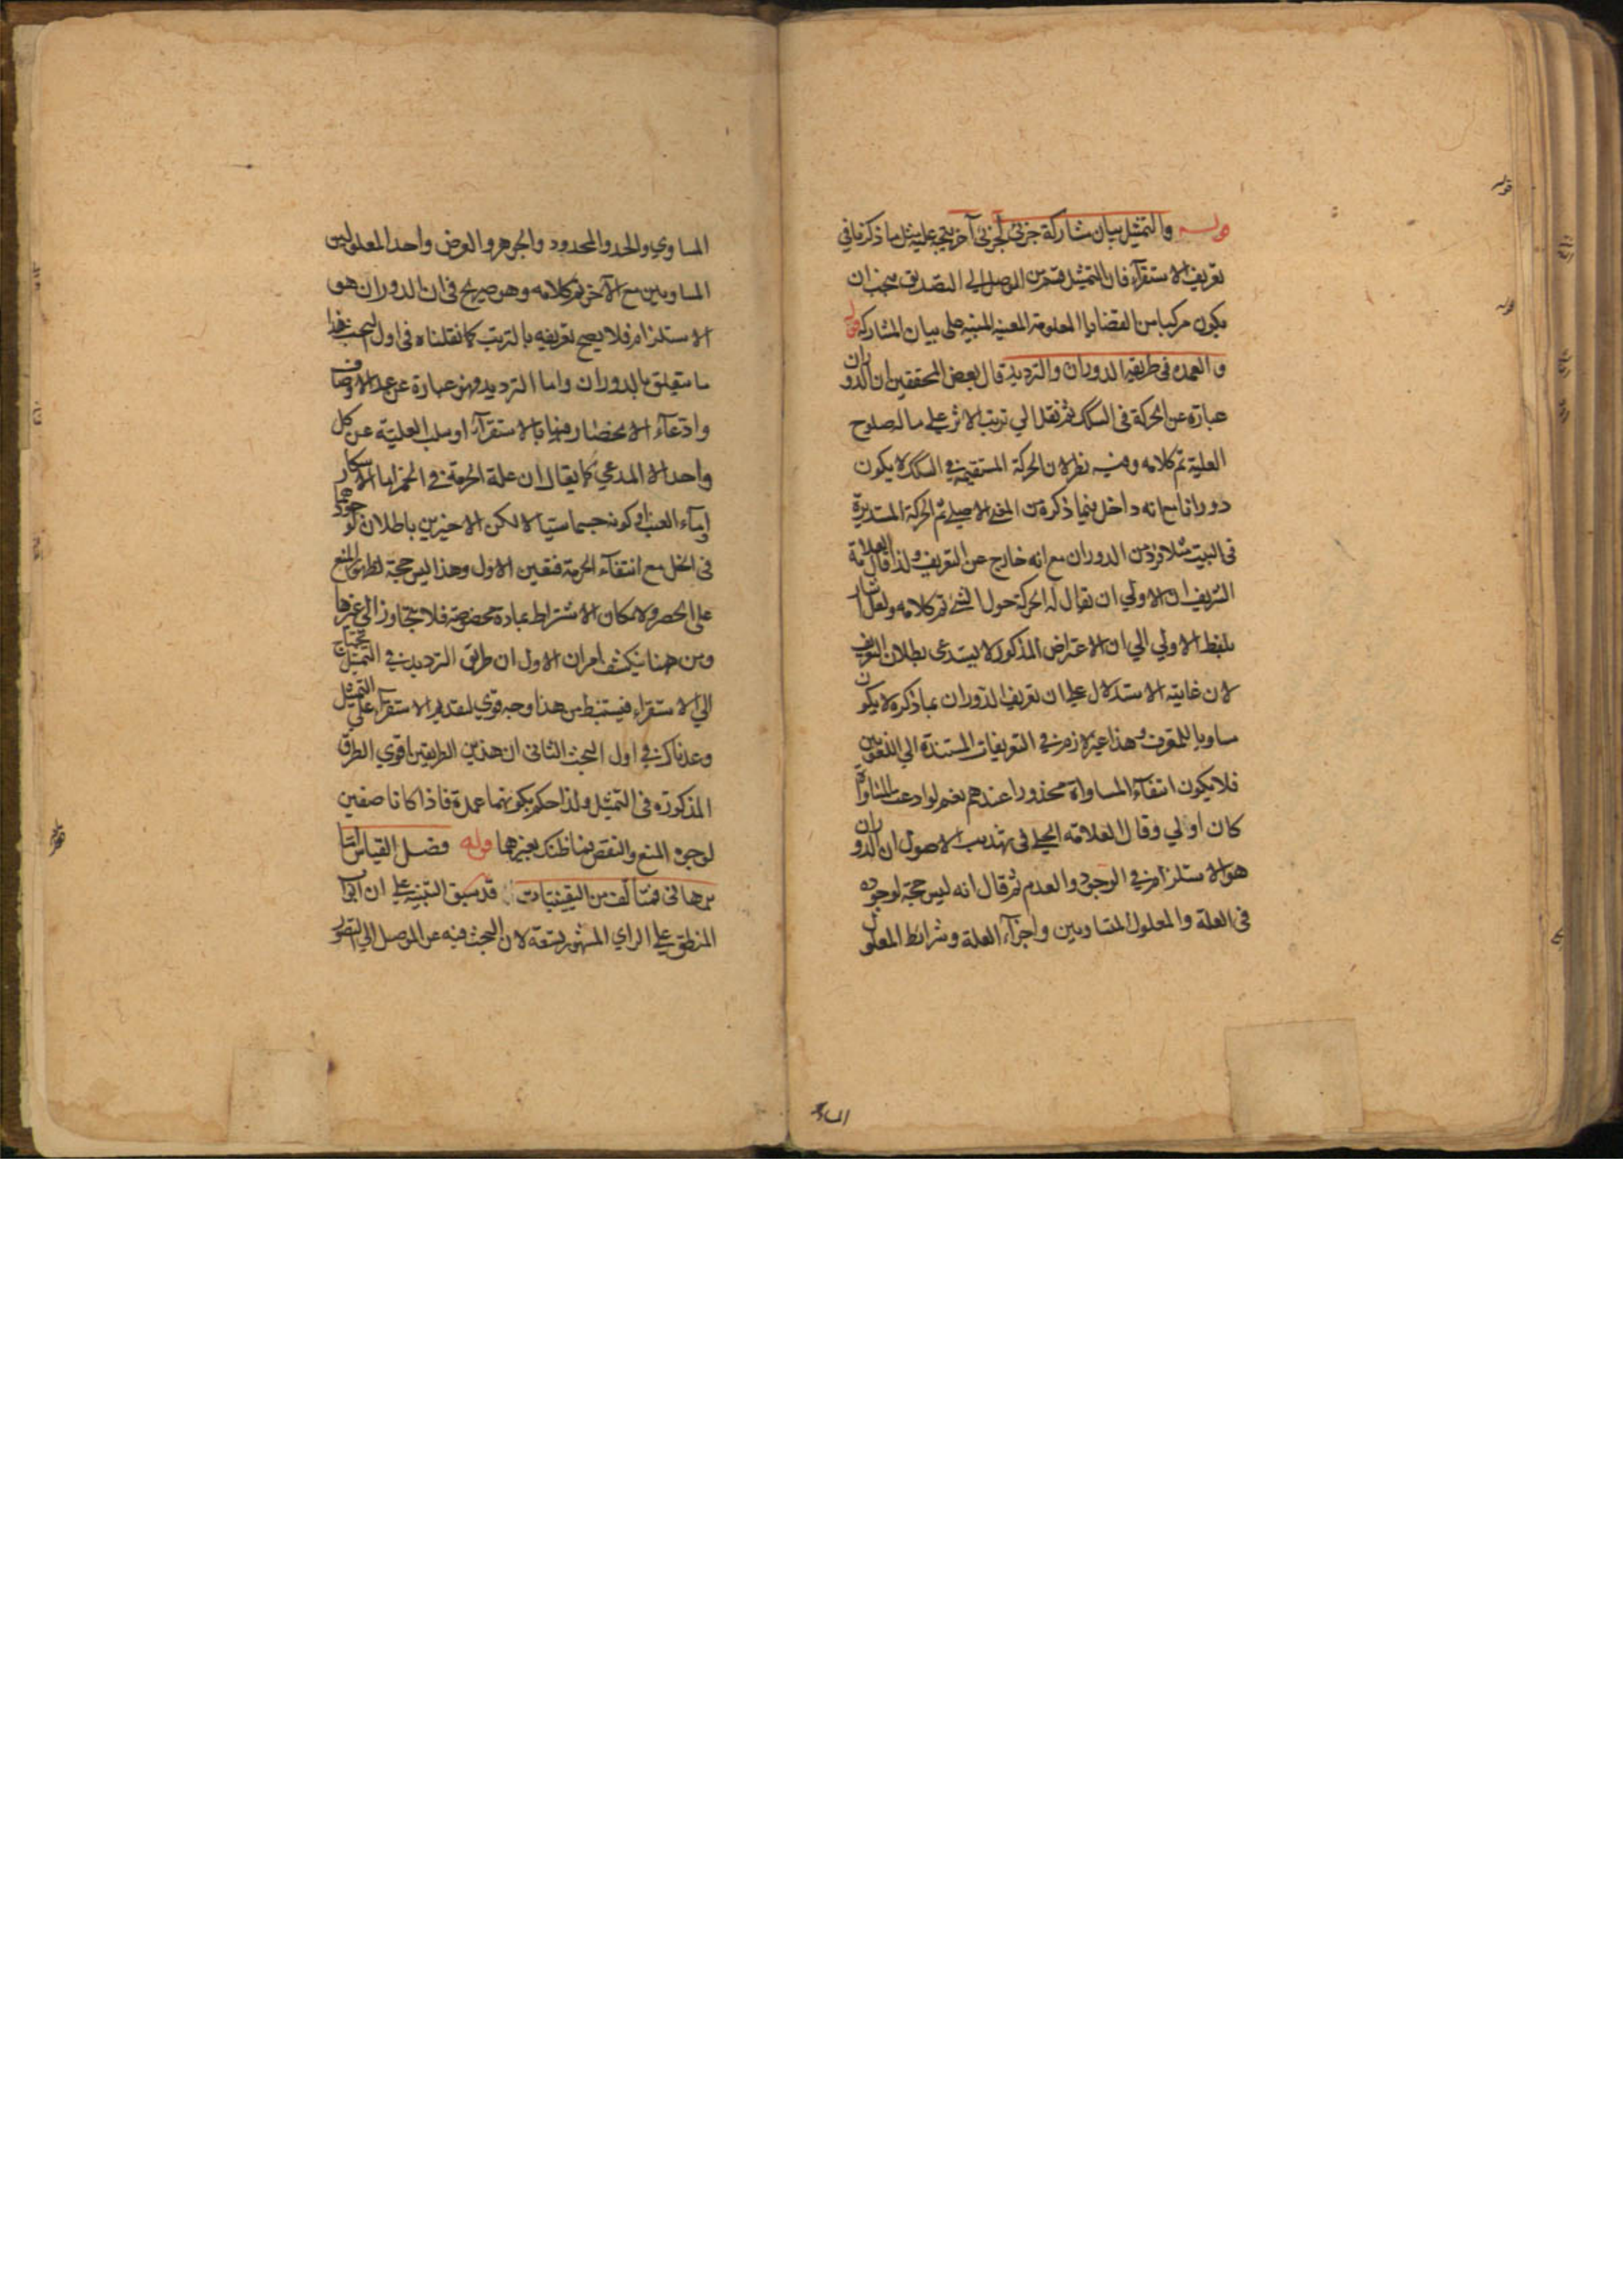 قوله والتمثيل بيان مشاركة جزئي لجزئي آخر يتجه عليه مثل ما ذكرنا في
تعريف الاستقرآء فان التمثيل قسم من الموصل الي التصديق فيجب ان
يكون مركبا من القضايا المعلومة المعينة المبنية على بيان المشاركة قوله
والعمدة في طريقه الدوران والترديد قال بعض المحققين ان الدوران
عبارة عن الحركة في السكك ثم نقل الي ترتب الاثر علي ما له صلوح
العلية تم كلامه وفيه نظر لان الحركة المستقيمة في السكك لا يكون
دورانا مع انه داخل فيما ذكره من المعني الاصلي ثم الحركة المستديرة
في البيت مثلا فرد من الدوران مع انه خارج عن التعريف ولذا قال العلامة
الشريف ان الاولي ان يقال له الحركة حول الشيء تم كلامه ولعل اشار
بلفظ الاولي الي ان الاعتراض المذكور لا يستدعى بطلان التعريف
لان غايته الاستدلال علي ان تعريف الدوران بما ذكره لا يكون
مساويا للمعرف وهذا غير لازم في التعريفات المستندة الي اللغويين
فلا يكون انتفآء المساواة محذورا عندهم نعم لو ادعت المساواة
كان اولي وقال العلامه الحلي في تهذيب الاصول ان الدوران
هو الاستلزام في الوجود والعدم ثم قال انه ليس حجة لوجوده
في العلة والمعلول المتساويين واجزآء العلة وشرائط المعلول
المساوي
المساوي والحد والمحدود والجوهر والعرض واحد المعلولين
المساويين مع الآخر تم كلامه وهو صريح في ان الدوران هو
الاستلزام فلا يصح تعريفه بالترتب كما نقلناه في اول البحث هذا
ما يتعلق بالدوران واما الترديد فهو عبارة عن عد الاوصاف
وادعآء الانحصار فيها بالاستقرآء او سلب العلية عن كل
واحد الا المدعي كما يقال ان علة الحرمة في الخمر اما الاسكار
او مآء العنب او كونه جسما سيالا لكن الاخيرين باطلان لوجودهما
في الخل مع انتفآء الحرمة فتعين الاول وهذا ليس حجة لظهور المنع
على الحصر ولامكان الاشتراط بمادة مخصوصة فلا يتجاوز الي غيرها
ومن هنا ينكشف امران الاول ان طريق الترديد في التمثيل يحتاج
الي الاستقراء فيستنبط من هذا وجه قوي لتقديم الاستقرآء علي التمثيل
وعدناك في اول البحث الثاني ان هذين الطريقين اقوي الطرق
المذكورة في التمثيل ولذا حكم بكونهما عمدة فاذا كانا ضعيفين
لوجود المنع والنقض فما ظنك بغيرهما قوله فصل القياس اما
برهاني فيتألف من اليقينيات قد سبق التنبيه علي ان ابواب
المنطق علي الراي المشهور تسعة لان البحث فيه عن الموصل الي التصور